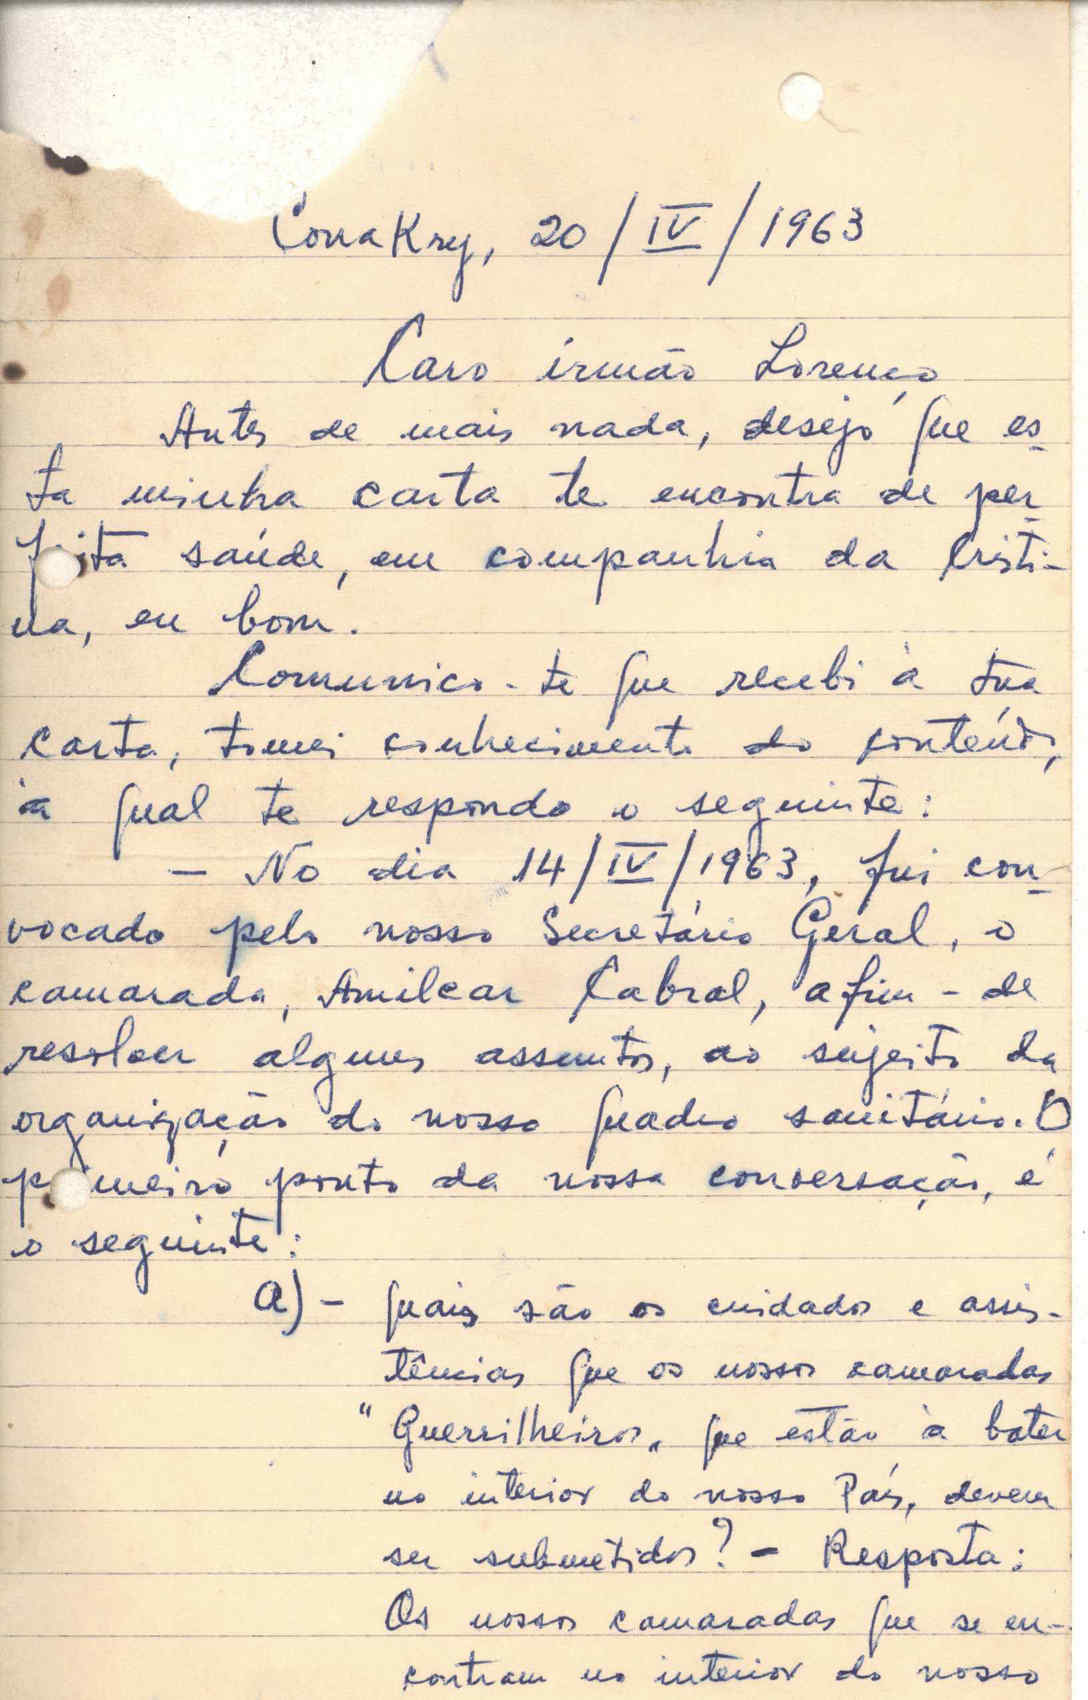 Conakry, 20/IV/1963
Caro irmão Lorenço
Antes de mais nada, desejo que es-
ta minha carta te encontra de per-
feita saúde, em companhia da Cristi-
na, eu bom.
Comunico-te que recebi à tua
carta, tomei conhecimento do conteúdo,
à qual te respondo o seguinte:
- No dia 14/IV/1963, fui con-
vocado pelo nosso Secretário Geral, o
camarada, Amilcar Cabral, afim-de
resolver algumes assuntos, ao sujeito da
organização do nosso quadro sanitário. O
primeiro ponto da nossa conversação, é
o seguinte:
a)- Quais são os cuidados e assis-
tências que os nossos camaradas
"Guerrilheiros" que estão à bater
no interior do nosso País, devem
ser submetidos? - Resposta:
Os nossos camaradas que se en-
contram no interior do nosso